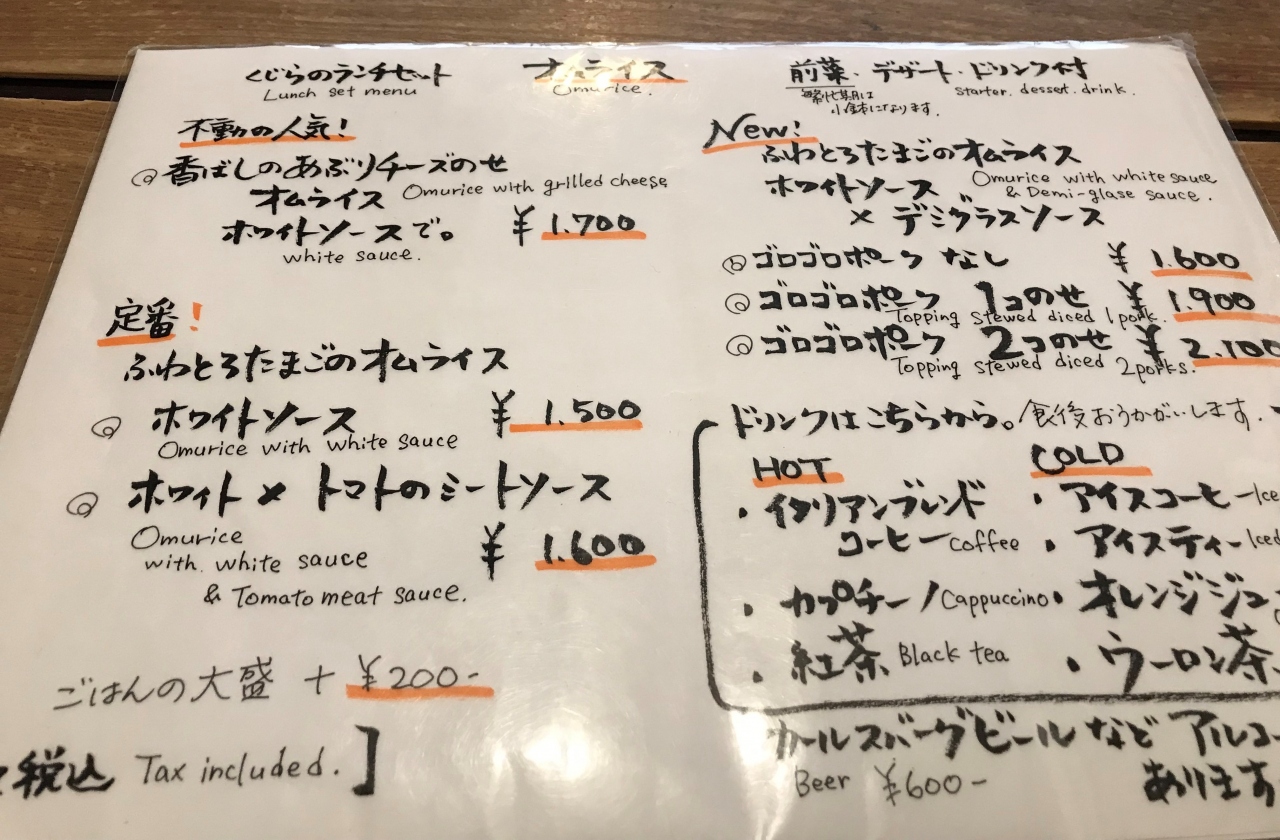 くじらのランチセット
Lunch set menu
オムライス
Omurice.
前菜・デザート・ドリンク付
starter. desset. drink.
繁忙期は
小鉢になります。
不動の人気!
香ばしのあぶりチーズのせ
オムライス Omurice with grilled cheese
ホワイトソースで。 ¥1.700
white sauce.
定番!
ふわとろたまごのオムライス
ホワイトソース ¥1.500
Omurice with white sauce
ホワイト × トマトのミートソース
Omurice
with. white sauce ¥1.600
& Tomato meat sauce.
ごはんの大盛 + ¥200-
税込 Tax included.]
New!
ふわとろたまごのオムライス
ホワイトソース Omurice with white sauce
& Demi-glase sauce.
× デミグラスソース
ゴロゴロポーク なし ¥1.600
ゴロゴロポーク 1コのせ ¥1.900
Topping stewed diced 1 pork.
ゴロゴロポーク 2コのせ ¥2.100
Topping stewed diced 2porks.
ドリンクはこちらから。食後おうかがいします。
HOT
・イタリアンブレンド
コーヒー coffee
・カプチーノ Cappuccino
・紅茶 Black tea
COLD
・アイスコーヒー Ice
・アイスティー Iced
・オレンジジュ
・ウーロン茶
カールスバーグビールなど アルコー
あります
Beer ¥600-